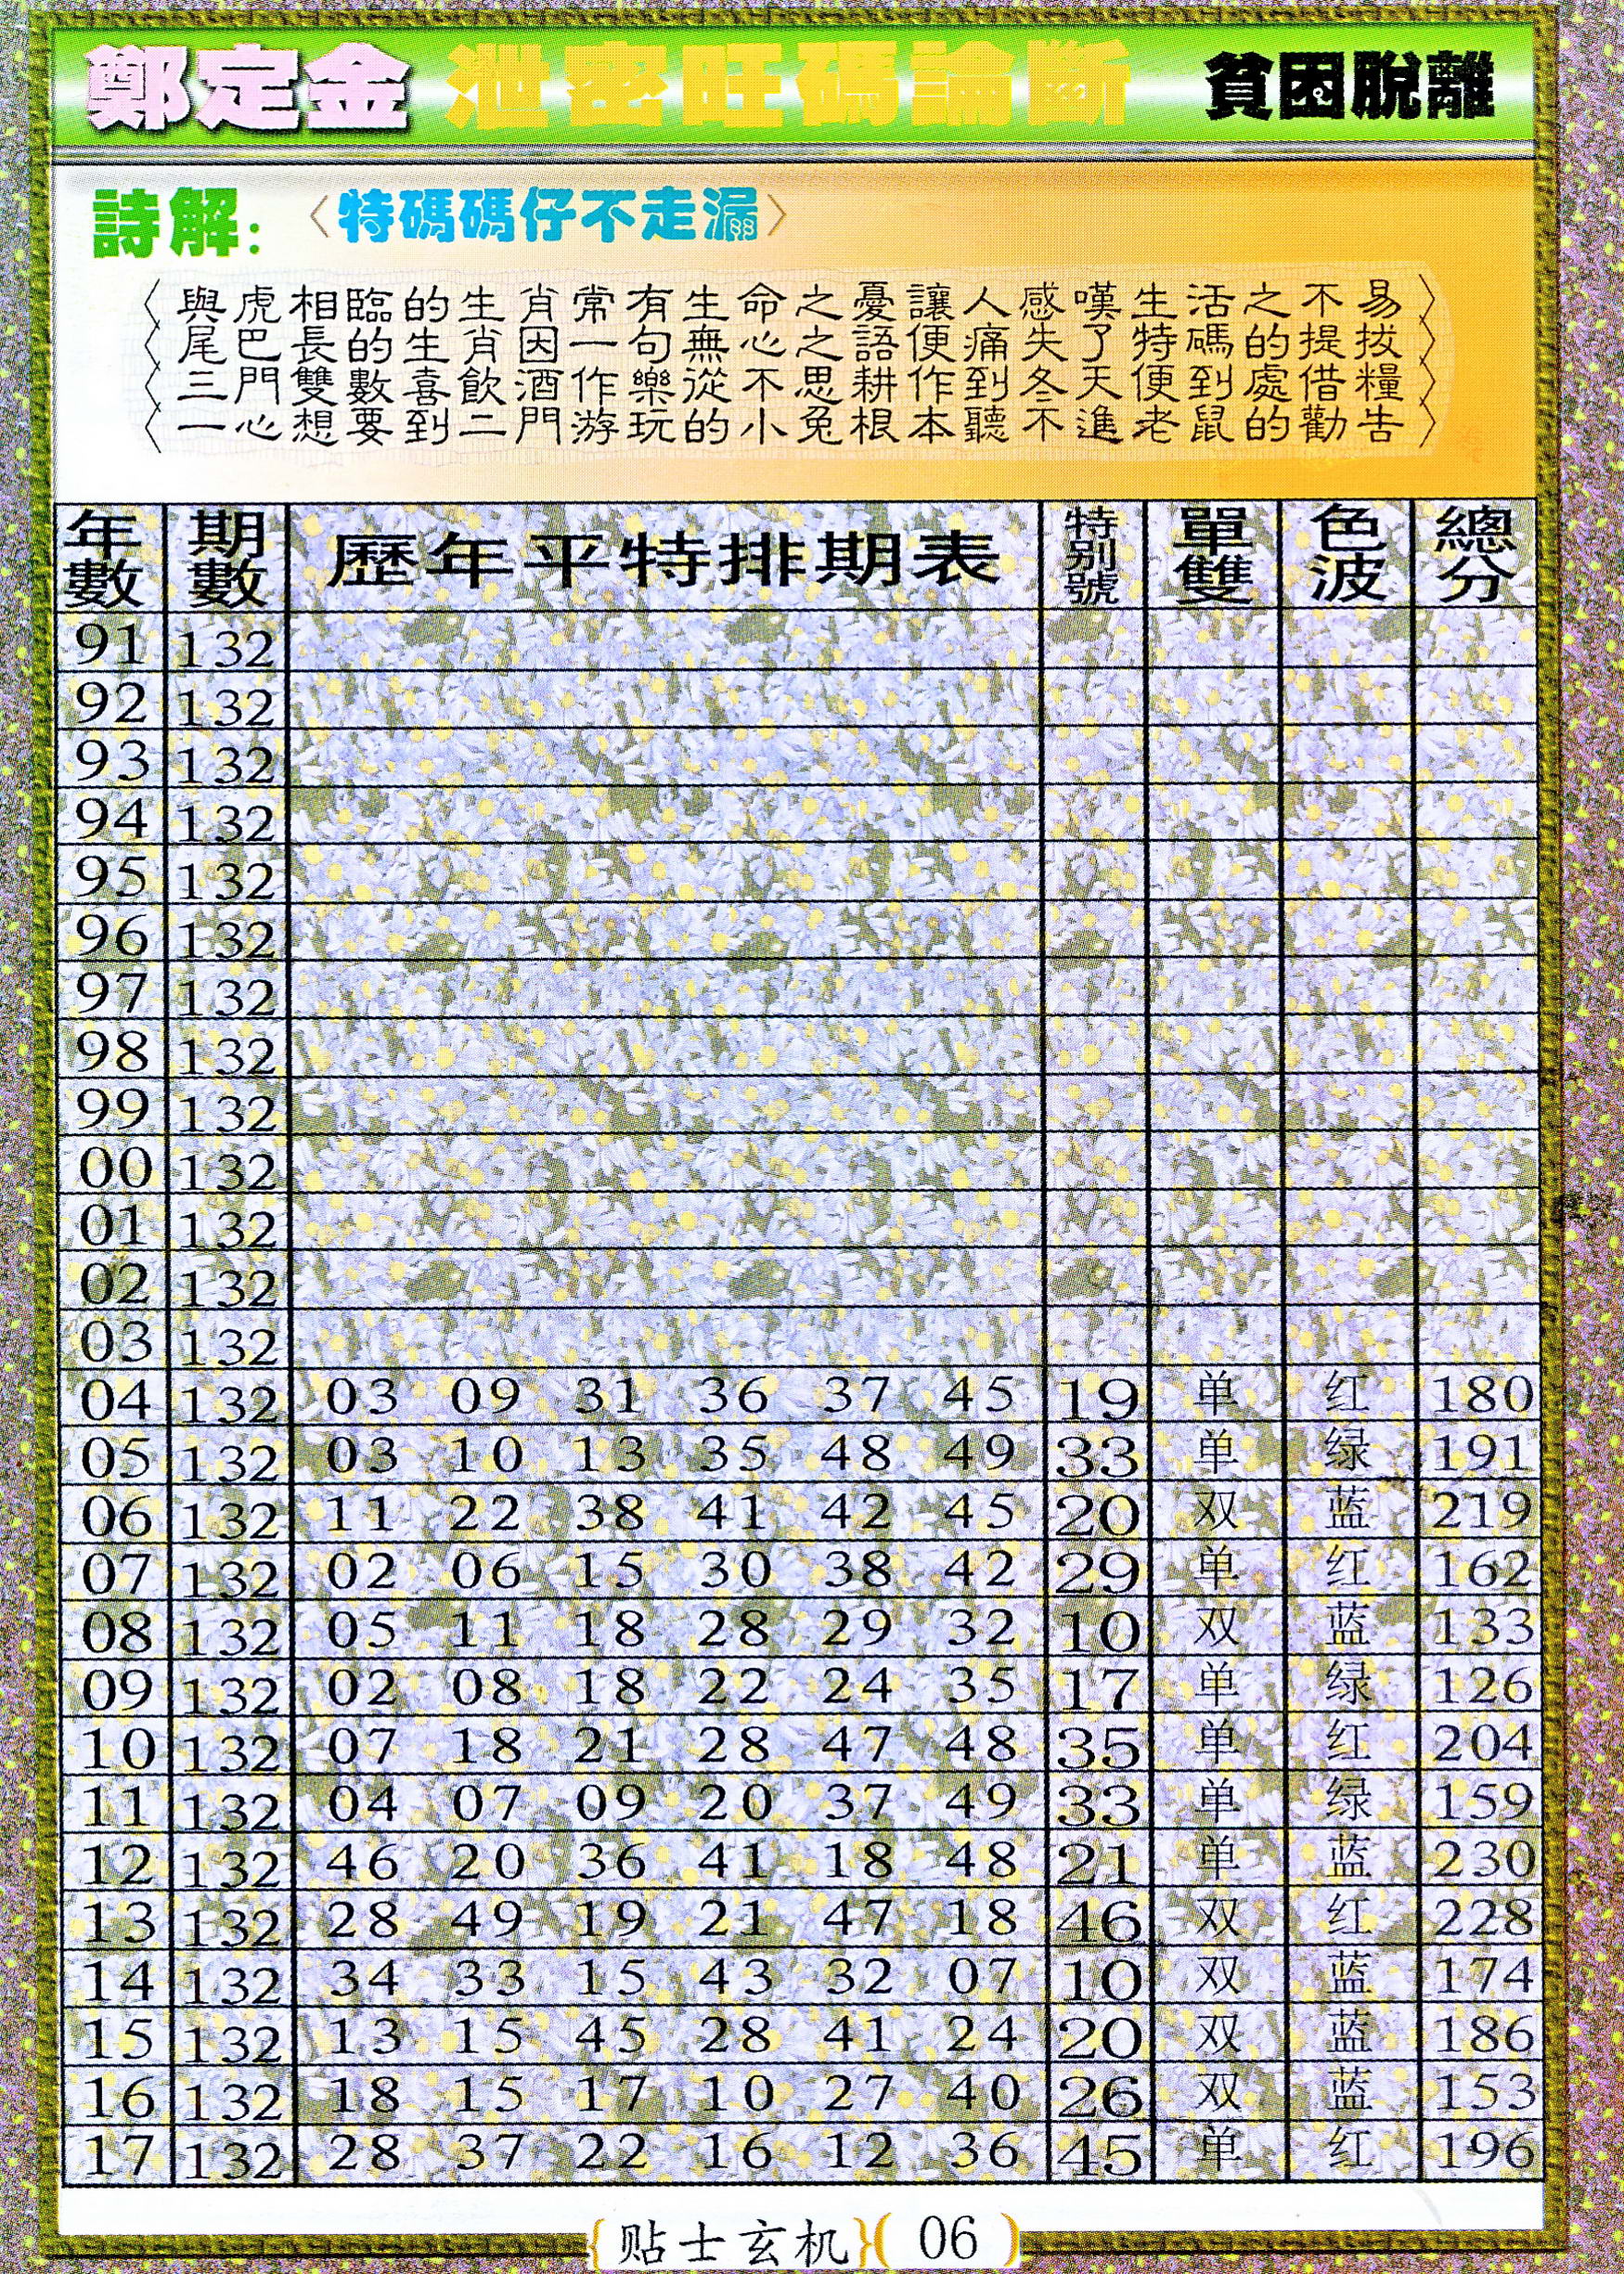 鄭定金 泄密旺碼論斷 貧困脫離
詩解: 〈特碼碼仔不走漏〉
〈與虎相臨的生肖常有生命之憂讓人感嘆生活之不易〉
〈尾巴長的生肖因一句無心之語便痛失了特碼的提拔〉
〈三門雙數喜飲酒作樂從不思耕作到冬天便到處借糧〉
〈一心想要到二門游玩的小兔根本聽不進老鼠的勸告〉
年數 期數 歷年平特排期表 特别號 單雙 色波 總分
91 132
92 132
93 132
94 132
95 132
96 132
97 132
98 132
99 132
00 132
01 132
02 132
03 132
04 132 03 09 31 36 37 45 19 单 红 180
05 132 03 10 13 35 48 49 33 单 绿 191
06 132 11 22 38 41 42 45 20 双 蓝 219
07 132 02 06 15 30 38 42 29 单 红 162
08 132 05 11 18 28 29 32 10 双 蓝 133
09 132 02 08 18 22 24 35 17 单 绿 126
10 132 07 18 21 28 47 48 35 单 红 204
11 132 04 07 09 20 37 49 33 单 绿 159
12 132 46 20 36 41 18 48 21 单 蓝 230
13 132 28 49 19 21 47 18 46 双 红 228
14 132 34 33 15 43 32 07 10 双 蓝 174
15 132 13 15 45 28 41 24 20 双 蓝 186
16 132 18 15 17 10 27 40 26 双 蓝 153
17 132 28 37 22 16 12 36 45 单 红 196
{贴士玄机}( 06 )